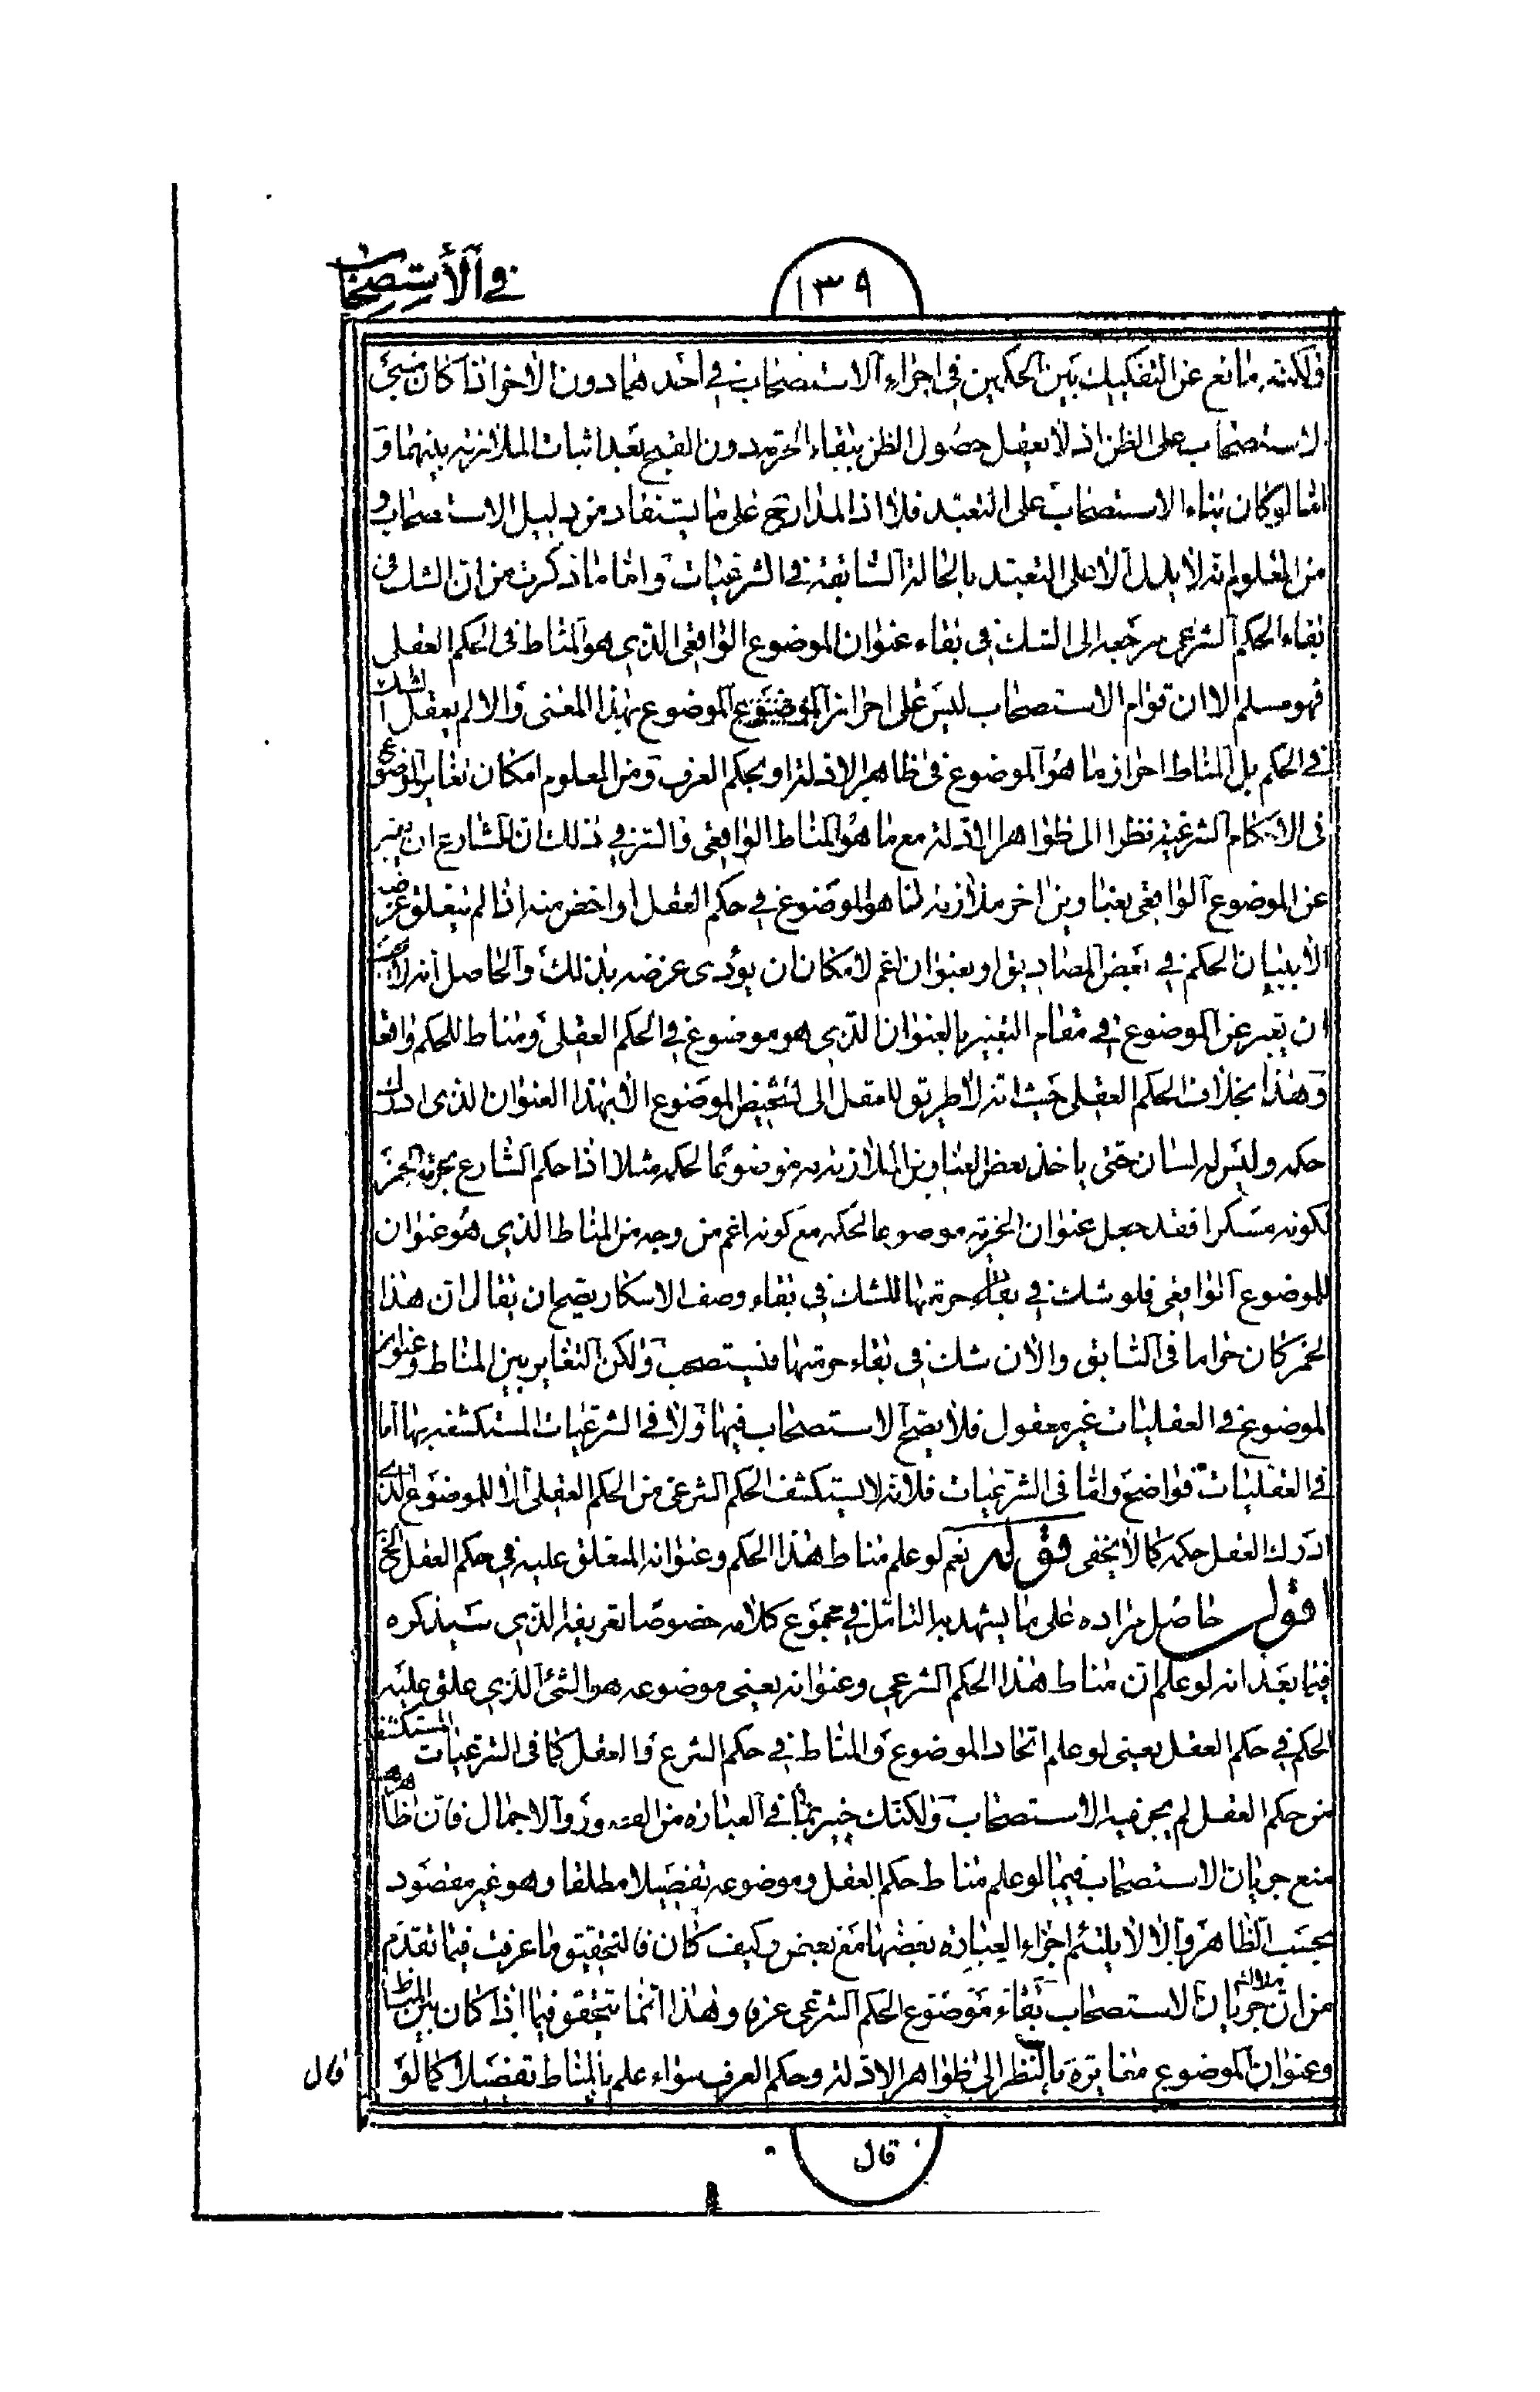 في الاستصحاب
١٣٩
ولكنه مانع عن التفكيك بين الحكمين في اجراء الاستصحاب في احدهما دون الاخر اذا كان مبنى
الاستصحاب على الظن اذ لا يعقل حصول الظن ببقاء الحرمة دون القبح بعد اثبات الملازمة بينهما و
اما لو كان بناء الاستصحاب على التعبد فلا اذ المدار ح على ما يستفاد من دليل الاستصحاب و
من المعلوم انه لا يدل الا على التعبد بالحالة السابقة في الشرعيات واما ما ذكرت من ان الشك في
بقاء الحكم الشرعى مرجعه الى الشك في بقاء عنوان الموضوع الواقعى الذي هو المناط في الحكم العقلى
فهو مسلم الا ان قوام الاستصحاب ليس على احراز الموضوع الموضوع بهذا المعنى والا لم يعقل الشك
في الحكم بل المناط احراز ما هو الموضوع في ظاهر الادلة او بحكم العرف ومن المعلوم امكان تغاير الموضوع
في الاحكام الشرعية نظرا الى ظواهر الادلة مع ما هو المناط الواقعى والسر في ذلك ان للشارع ان يعبر
عن الموضوع الواقعى بعناوين اخر ملازمة لما هو الموضوع في حكم العقل او اخص منه اذا لم يتعلق غرضه
الا ببيان الحكم في بعض المصاديق او بعنوان اعم لامكان ان يؤدى غرضه بذلك والحاصل انه لا يجب
ان يعبر عن الموضوع في مقام التعبير بالعنوان الذي هو موضوع في الحكم العقلى ومناط للحكم واقعا
وهذا بخلاف الحكم العقلى حيث انه لا طريق للعقل الى تشخيص الموضوع الا بهذا العنوان الذى ادرك
حكمه وليس له لسان حتى ياخذ بعض العناوين الملازمة له موضوعا لحكمه مثلا اذا حكم الشارع بحرمة الخمر
لكونه مسكرا فقد جعل عنوان الخمرية موضوعا لحكمه مع كونه اعم من وجه من المناط الذي هو عنوان
للموضوع الواقعى فلو شك في بقاء حرمتها للشك في بقاء وصف الاسكار يصح ان يقال ان هذا
الخمر كان حراما في السابق والان شك في بقاء حرمتها فيستصحب ولكن التغاير بين المناط وعنوان
الموضوع في العقليات غير معقول فلا يصح الاستصحاب فيها ولا في الشرعيات المستكشفة بها اما
في العقليات فواضح واما في الشرعيات فلانه لا يستكشف الحكم الشرعى من الحكم العقلى الا للموضوع الذى
ادرك العقل حكمه كما لا يخفى قوله نعم لو علم مناط هذا الحكم وعنوانه المتعلق عليه في حكم العقل الخ
اقول حاصل مراده على ما يشهد به التامل في مجموع كلامه خصوصا تعريفه الذي سيذكره
فيما بعد انه لو علم ان مناط هذا الحكم الشرعي وعنوانه يعنى موضوعه هو الشئ الذي علق عليه
الحكم في حكم العقل يعنى لو علم اتحاد الموضوع والمناط في حكم الشرع والعقل كما في الشرعيات المستكشفة
من حكم العقل لم يجر فيه الاستصحاب ولكنك خبير بما في العبارة من القصور والاجمال فان ظاهره
منع جريان الاستصحاب فيما لو علم مناط حكم العقل وموضوعه تفصيلا مطلقا وهو غير مقصود
بحسب الظاهر والا لا يلتئم اجزاء العبارة بعضها مع بعض وكيف كان فالتحقيق ما عرفت فيما تقدم
من ان جريان الاستصحاب بقاء موضوع الحكم الشرعى عرفا وهذا انما يتحقق فيما اذا كان بين المناط
وعنوان الموضوع مغايرة بالنظر الى ظواهر الادلة وحكم العرف سواء علم بالمناط تفصيلا كما لو
قال
قال